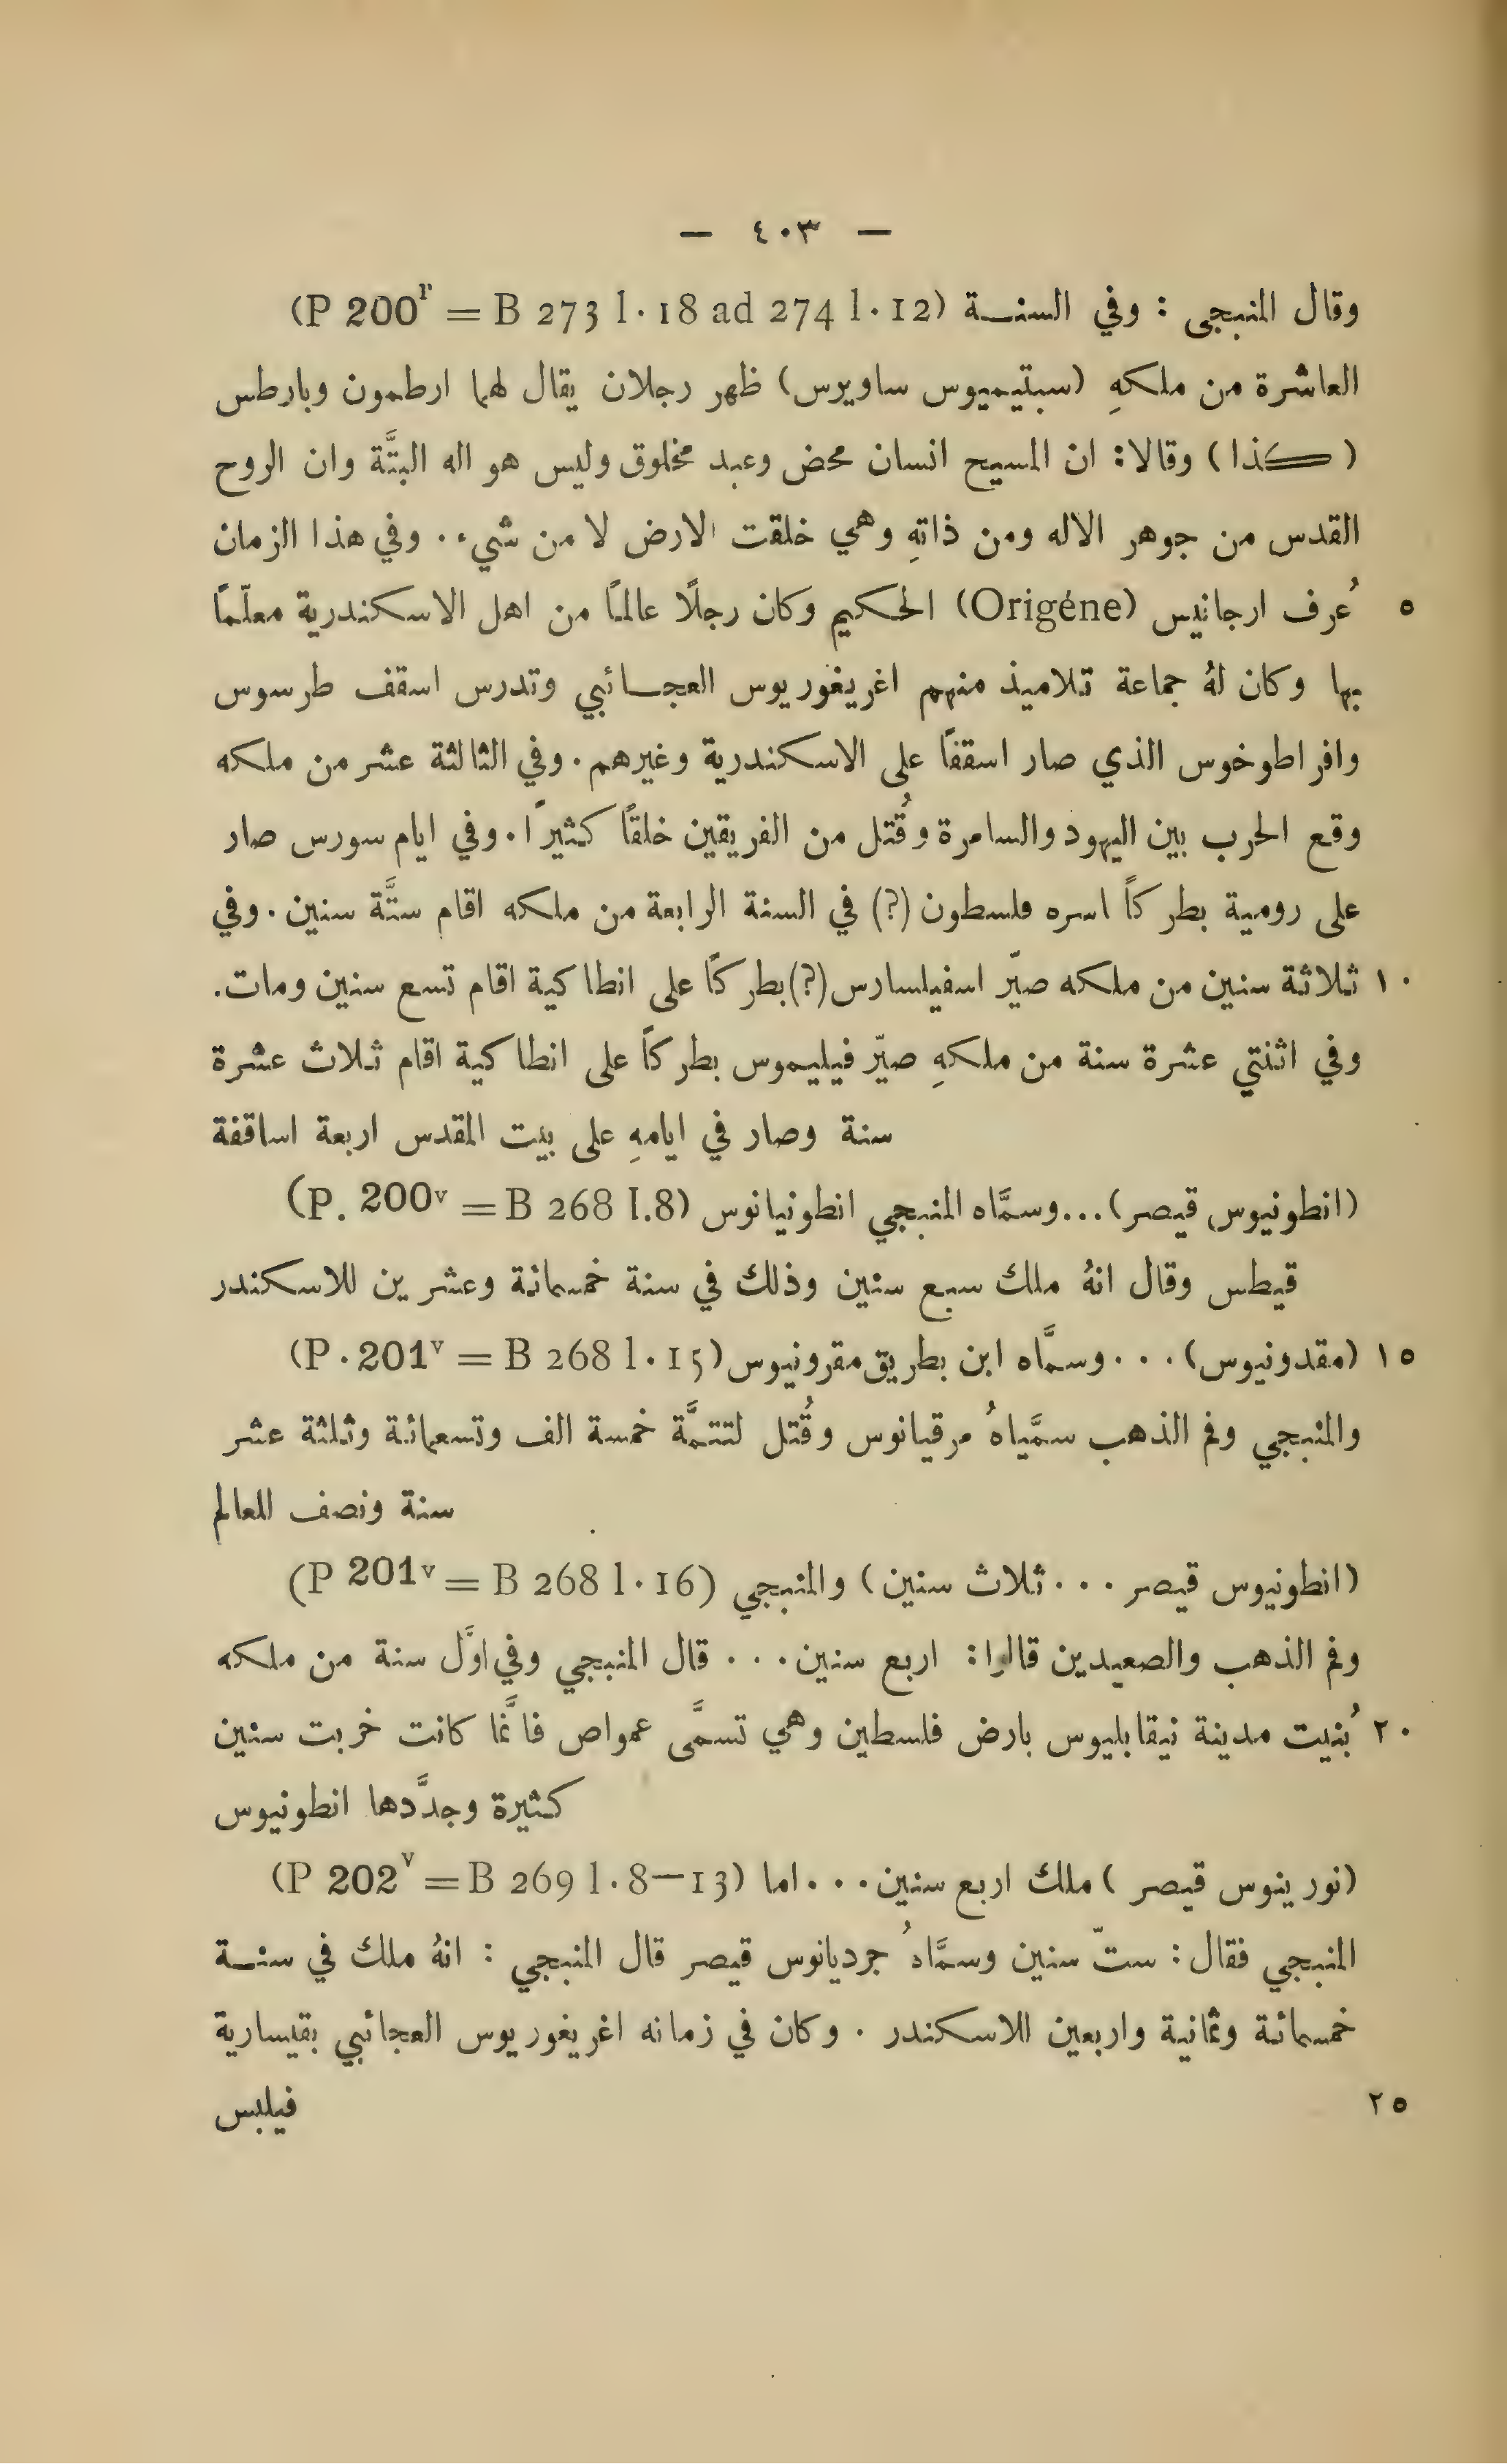 — ٤٠٣ —
(P 200r = B 273 l. 18 ad 274 l. 12) وقال المنبجي : وفي السنـة
العاشرة من ملكهِ (سبتيميوس ساويرس) ظهر رجلان يقال لهما ارطمون وبارطس
(كذا) وقالا: ان المسيح انسان محض وعبد مخلوق وليس هو اله البتَّة وان الروح
القدس من جوهر الاله ومن ذاتهِ وهي خلقت الارض لا من شيء. وفي هذا الزمان
٥ عُرف ارجانيس (Origéne) الحكيم وكان رجلًا عالمًا من اهل الاسكندرية معلّمًا
بها وكان لهُ جماعة تلاميذ منهم اغريغوريوس العجـائبي وتدرس اسقف طرسوس
وافراطوخوس الذي صار اسقفًا على الاسكندرية وغيرهم. وفي الثالثة عشر من ملكه
وقع الحرب بين اليهود والسامرة وقُتل من الفريقين خلقًا كثيرًا. وفي ايام سورس صار
على رومية بطركاً اسره فلسطون (?) في السنة الرابعة من ملكه اقام ستَّة سنين. وفي
١٠ ثلاثة سنين من ملكه صيّر اسفيلسارس (?) بطركًا على انطاكية اقام تسع سنين ومات.
وفي اثنتي عشرة سنة من ملكهِ صيّر فيليموس بطركاً على انطاكية اقام ثلاث عشرة
سنة وصار في ايامهِ على بيت المقدس اربعة اساقفة
(P. 200v = B 268 l.8) (انطونيوس قيصر)...وسمَّاه المنبجي انطونيانوس
قيطس وقال انهُ ملك سبع سنين وذلك في سنة خمسمائة وعشرين للاسكندر
١٥ (P. 201v = B 268 l. 15) (مقدونيوس) ... وسمَّاه ابن بطريق مقرونيوس
والمنبجي وفم الذهب سمَّياهُ مرقيانوس وقُتل لتتمَّة خمسة الف وتسعمائة وثلثة عشر
سنة ونصف للعالم
(P 201v = B 268 l. 16) (انطونيوس قيصر ... ثلاث سنين) والمنبجي
وفم الذهب والصعيدين قالوا: اربع سنين... قال المنبجي وفي اوَّل سنة من ملكه
٢٠ بُنيت مدينة نيقابليوس بارض فلسطين وهي تسمَّى عمواص فانَّما كانت خربت سنين
كثيرة وجدَّدها انطونيوس
(P 202v = B 269 l. 8—13) (نورينوس قيصر) ملك اربع سنين... اما
المنبجي فقال: ستّ سنين وسمَّاهُ جرديانوس قيصر قال المنبجي : انهُ ملك في سنـة
خمسمائة وثمانية واربعين للاسكندر . وكان في زمانه اغريغوريوس العجائبي بقيسارية
٢٥ فيلبس